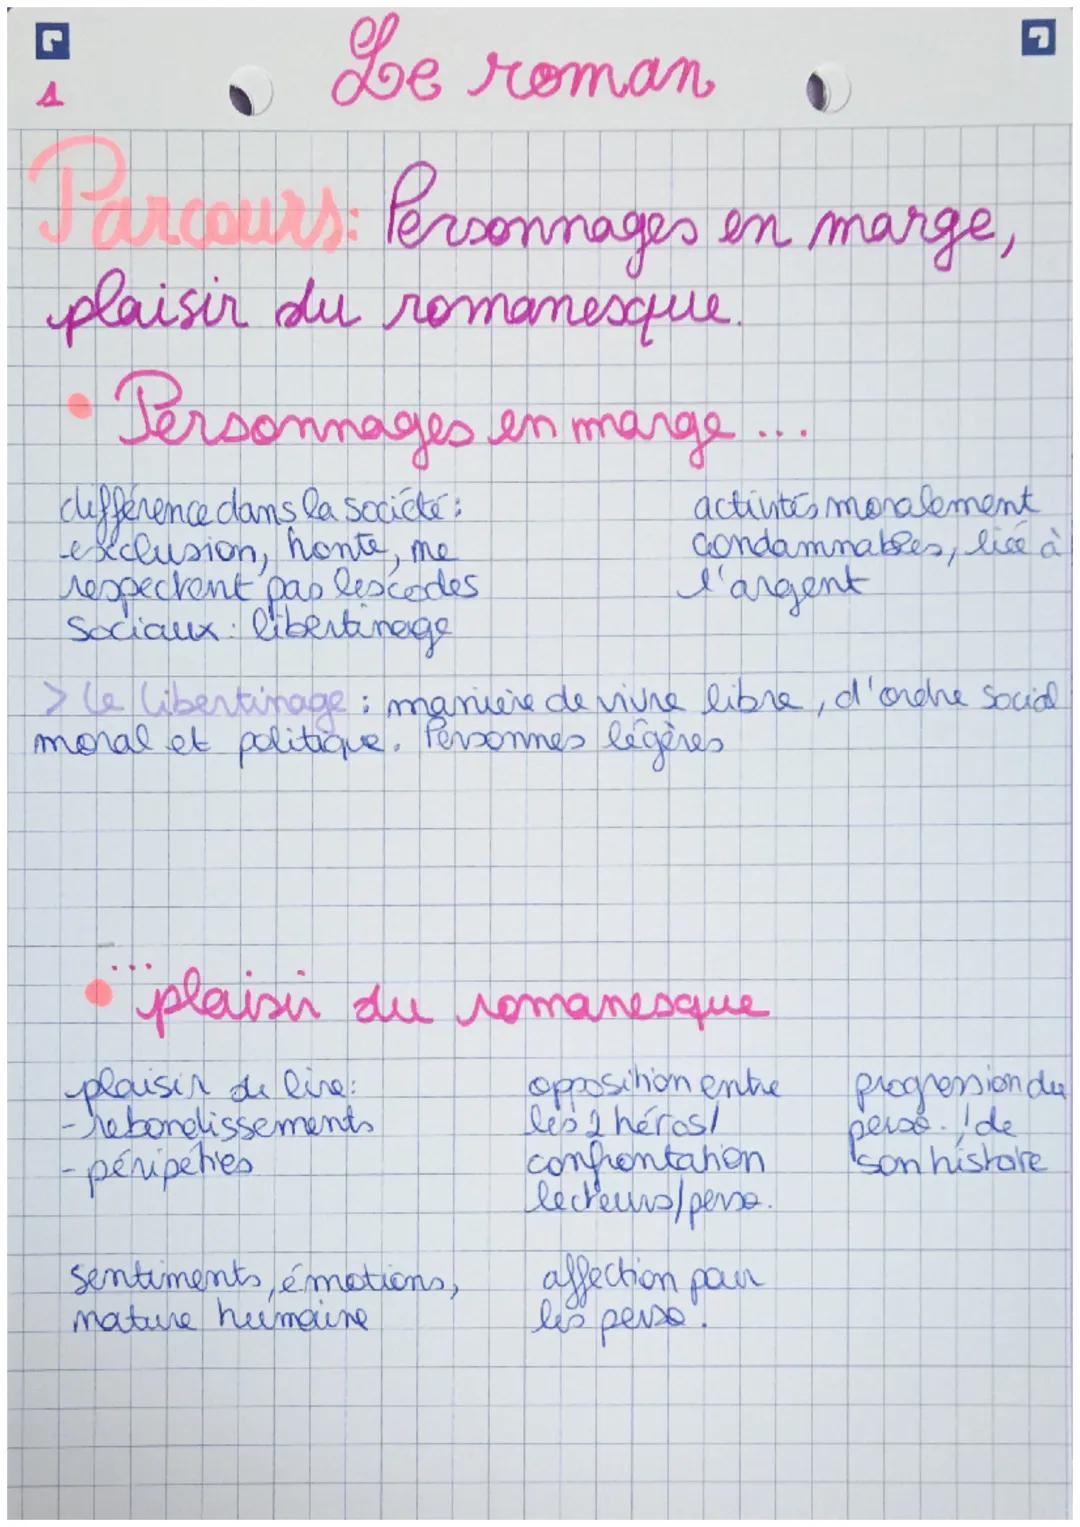 Le roman
1
Parcours: Personnages en marge,
plaisir du romanesque.
• Personnages en marge ...
différence dans la société:
exclusion, honte, ne
respectent pas les codes
sociaux: libertinage
activités moralement
condamnables, liée à
l'argent
> Le libertinage : manière de vivre libre, d'ordre social
moral et politique. Personnes légères
• ...plaisir du romanesque
plaisir de lire:
- rebondissements
- péripéties
opposition entre
les 2 héros/
confrontation
lecteurs/perso.
progression du
perso. / de
son histoire
sentiments, émotions,
nature humaine
affection pour
les perso.